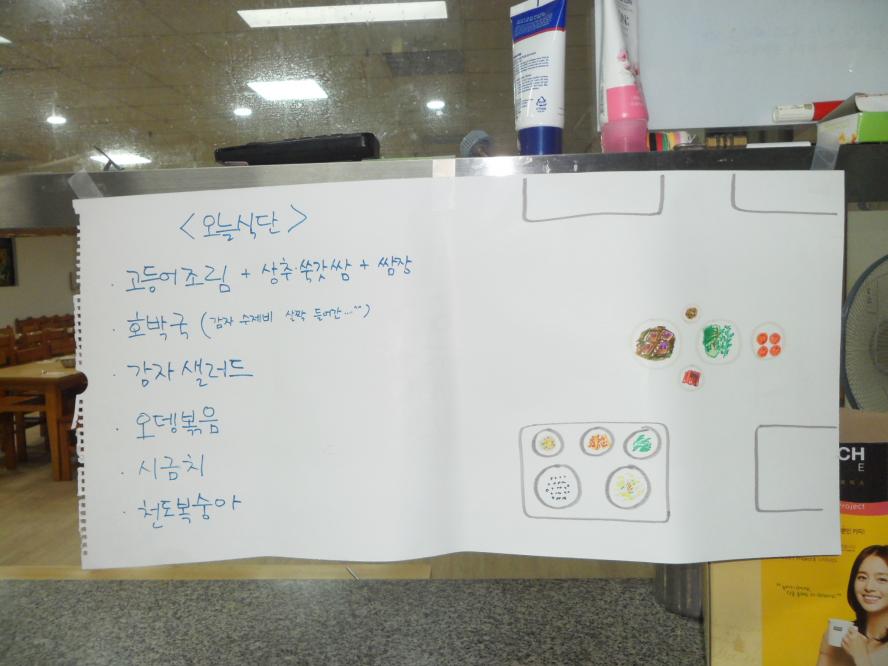 <오늘식단>
· 고등어조림 + 상추·쑥갓쌈 + 쌈장
· 호박국 (감자 수제비 살짝 들어간...^^)
· 감자샐러드
· 오뎅볶음
· 시금치
· 천도복숭아
CH
E
roject